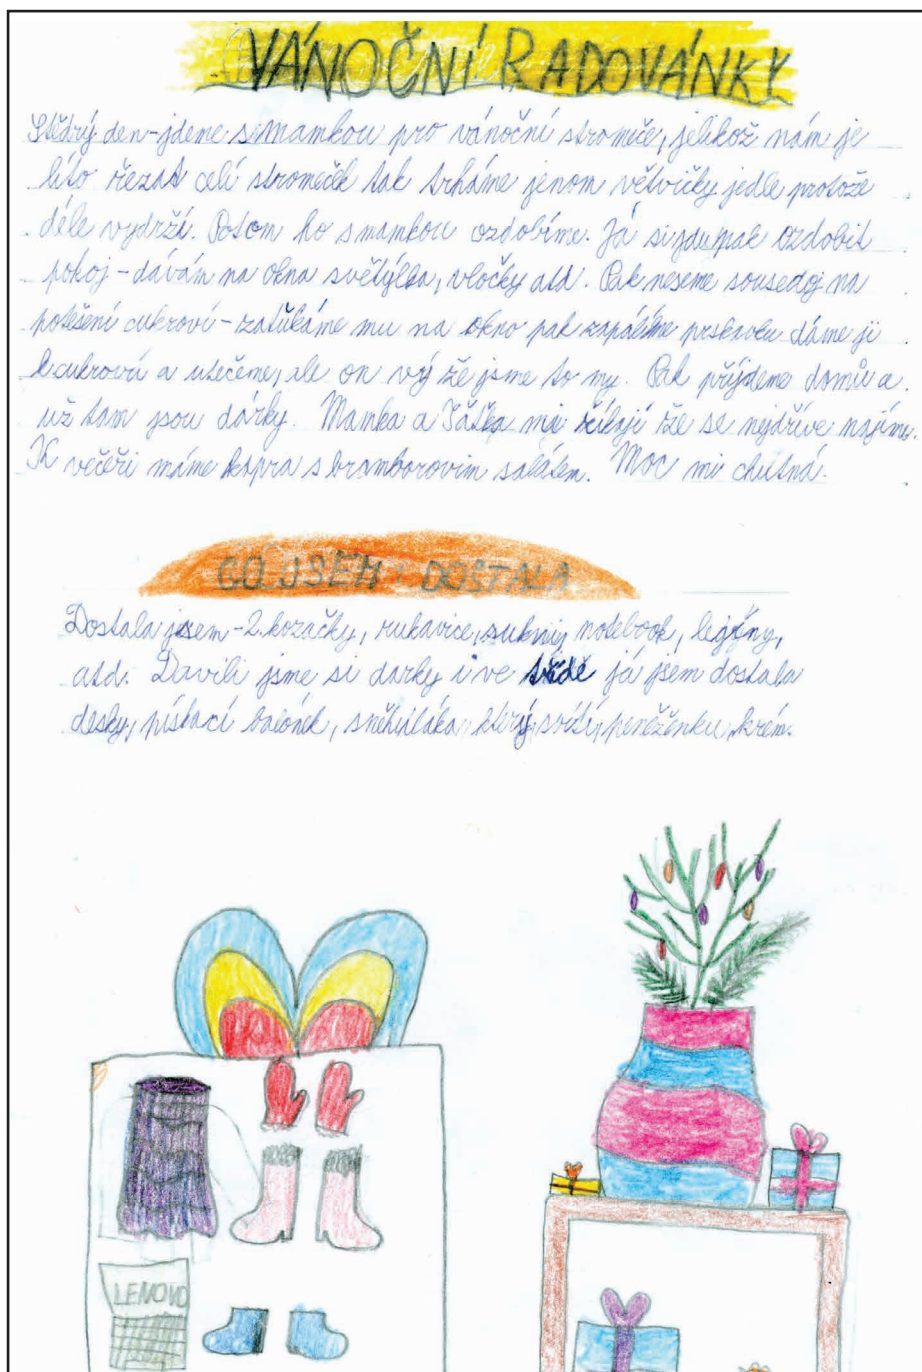 VÁNOČNÍ RADOVÁNKY
Štědrý den-jdeme s mamkou pro vánoční stromeče, jelikož nám je
líto řezat celí stromeček tak trháme jenom větvičky jedle protože
déle vydrží. Potom ho s mamkou ozdobíme. Já si jdu pak ozdobit
pokoj-dávám na okna světýlka, vločky atd. Pak neseme sousedoj na
potěšení cukroví-zaťukáme mu na okno pak zapálíme prskavku dáme ji
k cukroví a utečeme, ale on vý že jsme to my. Pak příjdeme domů a
už tam jsou dárky. Mamka a Táťka mi říkají že se nejdříve najíme.
K večeři máme kapra s bramborovim salátem. Moc mi chutná.
CO JSEM DOSTALA
Dostala jsem-2.kozačky, rukavice, sukni, notebook, legíny,
atd. Davili jsme si darky i ve třídě já jsem dostala
desky, pískací balónek, sněhuláka, který svítí, peněženku, krém.
LENOVO